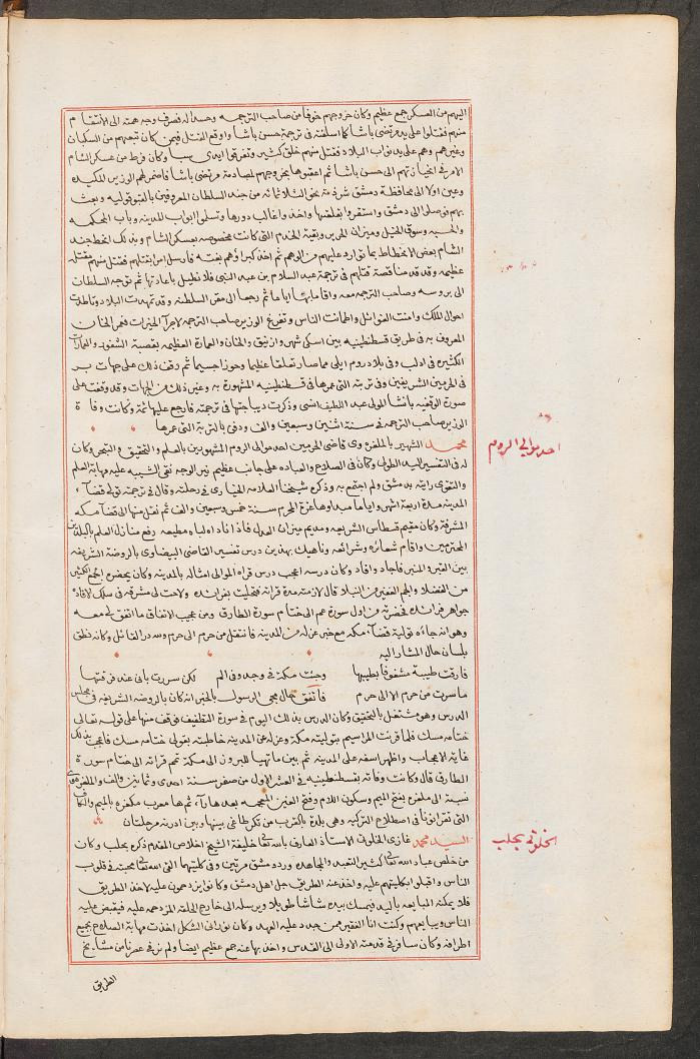 اليهم من العسكر جمع عظيم وكان خروجهم خوفا من صاحب الترجمه وحسدا له فصرف وجه همته الى الانتقام
منهم فقتلوا على يد مرتضى باشا كما اسلفته في ترجمة حسن باشا واوقع القتل فيمن كان تبعهم من السكبان
وغيرهم وهم على يد نواب البلاد فقتل منهم خلق كثير وتفرقوا ايدي سبا وكان فرط من عسكر الشام
الامر في انحيازتهم الى حسن باشا ثم اعقبوها بخروجهم لمصادمة مرتضى باشا فاضمر لهم الوزير المكيده
وعين اولا الى محافظة دمشق شرذمة نحو الثلاثمائه من جند السلطان المعروفين بالقبوقوليه وبعث
بهم فوصلوا الى دمشق واستقروا بقلعتها واخذوا غالب دورها وتسلموا ابواب المدينه وباب المحكمه
والحسبه وسوق الخيل وميزان الحرير وبقية الخدم التي كانت مخصوصه بعسكر الشام وبذلك انحط جند
الشام بعض الانحطاط بما توارد عليهم من الوهم ثم اخذ كبراؤهم بغته فارسل امرا بقتلهم فقتل منهم مقتله
عظيمه وقد قدمنا قصة قتلهم في ترجمة عبد السلام بن عبد النبي فلا نطيل باعادتها ثم توجه السلطان
الى بروسه وصاحب الترجمه معه واقاما بها اياما ثم رجعا الى مقر السلطنه وقد تمهدت البلاد وتاطدت
احوال الملك وامنت الغوائل واطمأنت الناس وتفرغ الوزير صاحب الترجمه لاجرآ الخيرات فعمر الخان
المعروف به في طريق قسطنطينيه بين اسكي شهر وازنيق والخان والعمارة العظيمه بقصبة الشغور والعمارات
الكثيره في ادلب وفي بلاد روم ايلي مما صار تعلقا عظيما وحوزا جسيما ثم وقف ذلك على جهات بر
في الحرمين الشريفين وفي تربته التي عمرها في قسطنطينيه المشهورة به وغير ذلك من الجهات وقد وقفت على
صورة الوقفيه بانشا المولى عبد اللطيف انسي وذكرت ديباجتها في ترجمته فارجع عليها ثمة وكانت وفاة
الوزير صاحب الترجمه في سنة اثنين وسبعين والف ودفن بالتربة التي عمرها
محمد الشهير بالملغروي قاضي الحرمين احد موالي الروم المشهورين بالعلم والتحقيق والتبحر وكان
له في التفسير اليد الطولى وكان في الصلاح والعباده على جانب عظيم نير الوجه نقي الشيبه عليه مهابة العلم
والتقوى رايته بدمشق ولم اجتمع به وذكره شيخنا العلامه الخياري في رحلته وقال في ترجمته تولى قضآ
المدينه مدة اربعة اشهر واياما مبداها غرة المحرم سنة خمس وسبعين والف ثم نقل منها الى قضآ مكه
المشرفة وكان مقيم قسطاس الشريعه ومديم ميزان العدل فاذا ناداه لباه مطيعه رفع منازل العلم بالبلدين
المحترمين واقام شعائره وشرائعه وناهيك بهذين درس تفسير القاضي البيضاوي بالروضة الشريفه
بين القبر والمنبر فأجاد وافاد وكان درسه اعجب درس قراه الموالي امثاله بالمدينه وكان يحضره الجمع الكثير
من الفضلا والجم الغفير من النبلا قال لازمته مدة قرائته فظفرت بفرائده ولاحت لي مشرقة في سلك الافاده
جواهر فرائده فحضرته من اول سورة عم الى ختام سورة الطارق ومن عجيب الاتفاق ما اتفق لي معه
وهو انه جاءه تولية قضآ مكه مع خبر عزله من المدينه فانتقل من حرم الى حرم ولله در القائل وكانه نطق
بلسان حال المشار اليه
فارقت طيبة مشغوفا بطيبها وجئت مكة في وجد وفي الم لكن سررت باني عند فرقتها
ما سرت من حرم الا الى حرم فاتفق حال مجى الرسول بالخبر انه كان بالروضه الشريفه في مجلس
الدرس وهو مشتغل بالتحقيق وكان الدرس بذلك اليوم في سورة المطففين فوقف منها على قوله تعالى
ختامه مسك فلما قرئت المراسيم بتوليته مكة وعزله عن المدينه خاطبته بقولي ختامه مسك فاعجب بذلك
غاية الاعجاب واظهر اسفه على المدينه ثم بين ما تهيا للبروز الى مكة تمم قرائته الى ختام سورة
الطارق قال وكانت وفاته بقسطنطينيه في العشر الاول من صفر سنة احدى وثمانين والف والملغروي
نسبة الى ملغره بفتح الميم وسكون اللام وفتح الغين المعجمه بعدها رآء ثم ها معرب مكغره بالميم والكاف
التي تقرا نونا في اصطلاح التركيه وهي بلدة بالقرب من تكرطاغي بينها وبين ادرنه مرحلتان
السيد محمد غازي الخلوتي الاستاذ العارف بالله تعالى خليفة الشيخ اخلاص المقدم ذكره بحلب وكان
من خلص عباد الله تعالى كثير التعبد والمجاهده ورد دمشق مرتين وفي كلتيهما القى الله تعالى محبته في قلوب
الناس واقبلوا بكليتهم عليه واخذ عنه الطريق جل اهل دمشق وكانوا يزدحمون عليه لاخذ الطريق
فلا يمكنه المبايعه باليد فيمسك بيده شاشا طويلا ويرسله الى خارج الحلقه المزدحمه عليه فيقبض عليه
الناس ويبايعهم وكنت انا الفقير ممن جدد عليه العهد وكان نوراني الشكل اخذت مهابة الصلاح بجميع
اطرافه وكان سافر في قدمته الاولى الى القدس واخذ بها عنه جمع عظيم ايضا ولم نر في عصرنا من مشايخ
الطريق
احد موالي الروم
الخلوتي بحلب